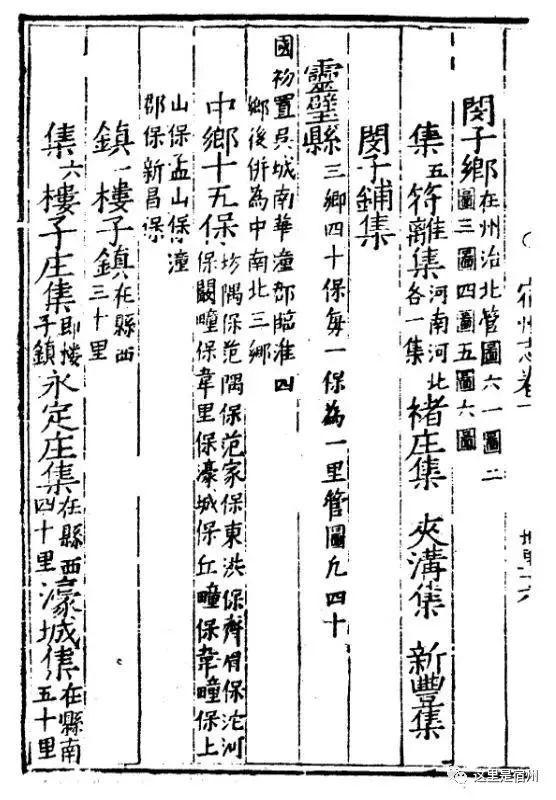 宿州志卷一
閔子鄉在州治北管圖六一圖二
圖三圖四圖五圖六圖
集五符離集河南河北各一集褚庄集 夾溝集 新豐集
閔子鋪集
靈壁縣三鄉四十保每一保為一里管圖凡四十
國初置具城南華潼郡臨淮四
鄉後併為中南北三鄉
中鄉十五保坊隅保范隅保范家保東洪保齊眉保沱河
保闞疃保韋里保濠城保丘疃保韋疃保上
山保孟山保潼
郡保新昌保
鎮一樓子鎮在縣西三十里
集六樓子庄集即楼子鎮永定庄集在縣西四十里濠城集在縣南五十里
这里是宿州